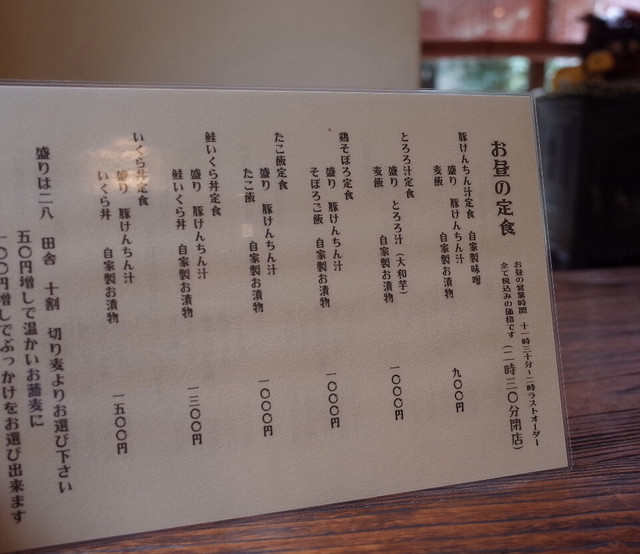 お昼の定食
お昼の営業時間 十一時三十分~二時ラストオーダー
全て税込みの価格です(二時三〇分閉店)
豚けんちん汁定食 自家製味噌
盛り 豚けんちん汁
麦飯 自家製お漬物
九〇〇円
とろろ汁定食
盛り とろろ汁(大和芋)
麦飯 自家製お漬物
一〇〇〇円
鶏そぼろ定食
盛り 豚けんちん汁
そぼろご飯 自家製お漬物
一〇〇〇円
たこ飯定食
盛り 豚けんちん汁
たこ飯 自家製お漬物
一〇〇〇円
鮭いくら丼定食
盛り 豚けんちん汁
鮭いくら丼 自家製お漬物
一三〇〇円
いくら丼定食
盛り 豚けんちん汁
いくら丼 自家製お漬物
一五〇〇円
盛りは二八 田舎 十割 切り麦よりお選び下さい
五〇円増しで温かいお蕎麦に
一〇〇円増しでぶっかけをお選び出来ます